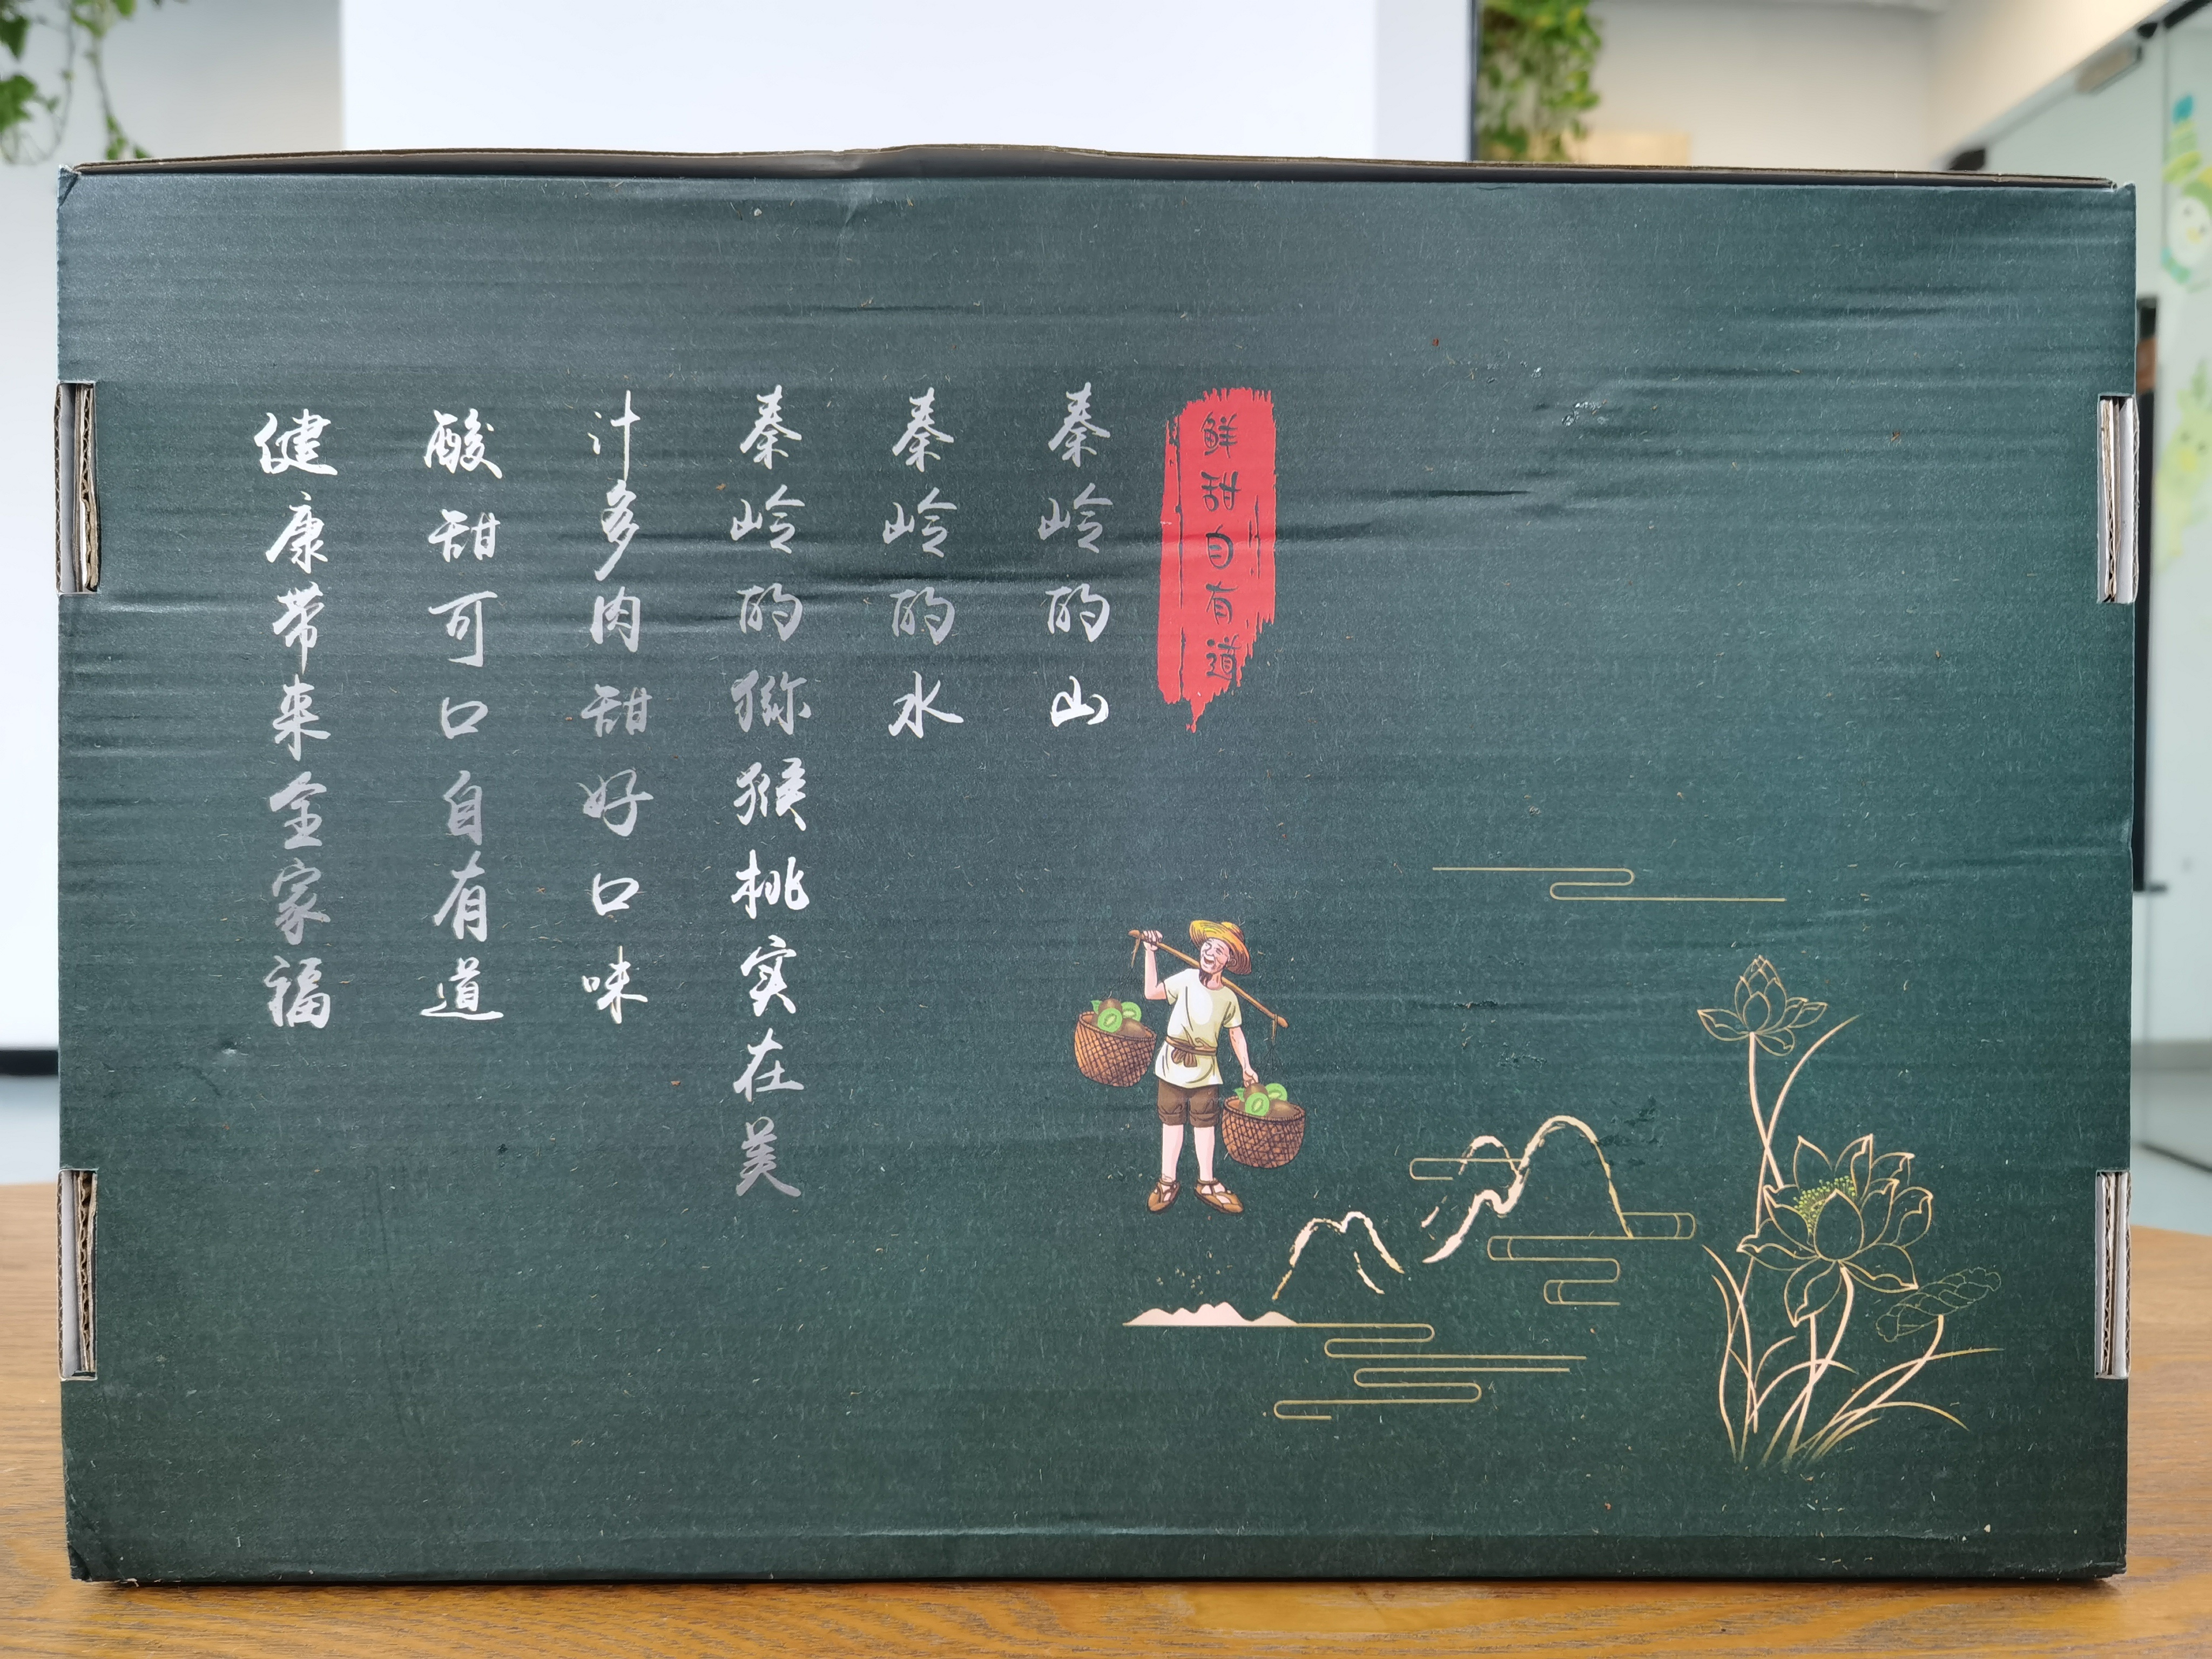 鲜甜自有道
秦岭的山
秦岭的水
秦岭的猕猴桃实在美
汁多肉甜好口味
酸甜可口自有道
健康带来全家福